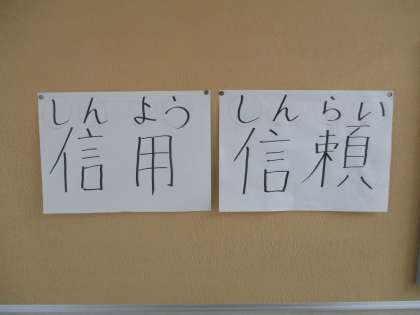 しんよう
信用
しんらい
信頼